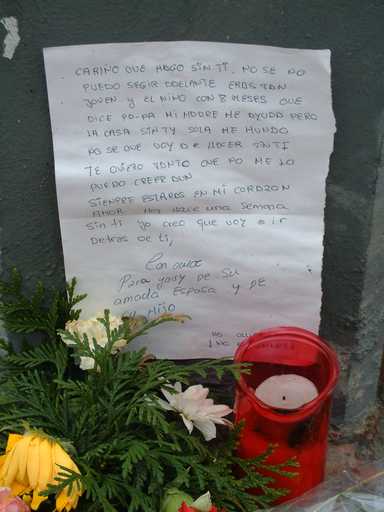 CARIÑO QUE HAGO SIN TI. NO SE NO
PUEDO SEGIR ADELANTE ERAS TAN
JOVEN Y EL NIÑO CON 8 MESES QUE
DICE PA-PA. MI MADRE ME AYUDA PERO
LA CASA SIN TY SOLA ME HUNDO
NO SE QUE VOY A HACER SIN TI
TE QUIERO TANTO QUE NO ME LO
PUEDO CREER AUN
SIEMPRE ESTARAS EN MI CORAZON
AMOR. Hoy Hace una Semana
sin ti yo creo que voy a ir
Detras de ti,
Con amor
Para de Su
amada Esposa y DE
su Hijo
NO